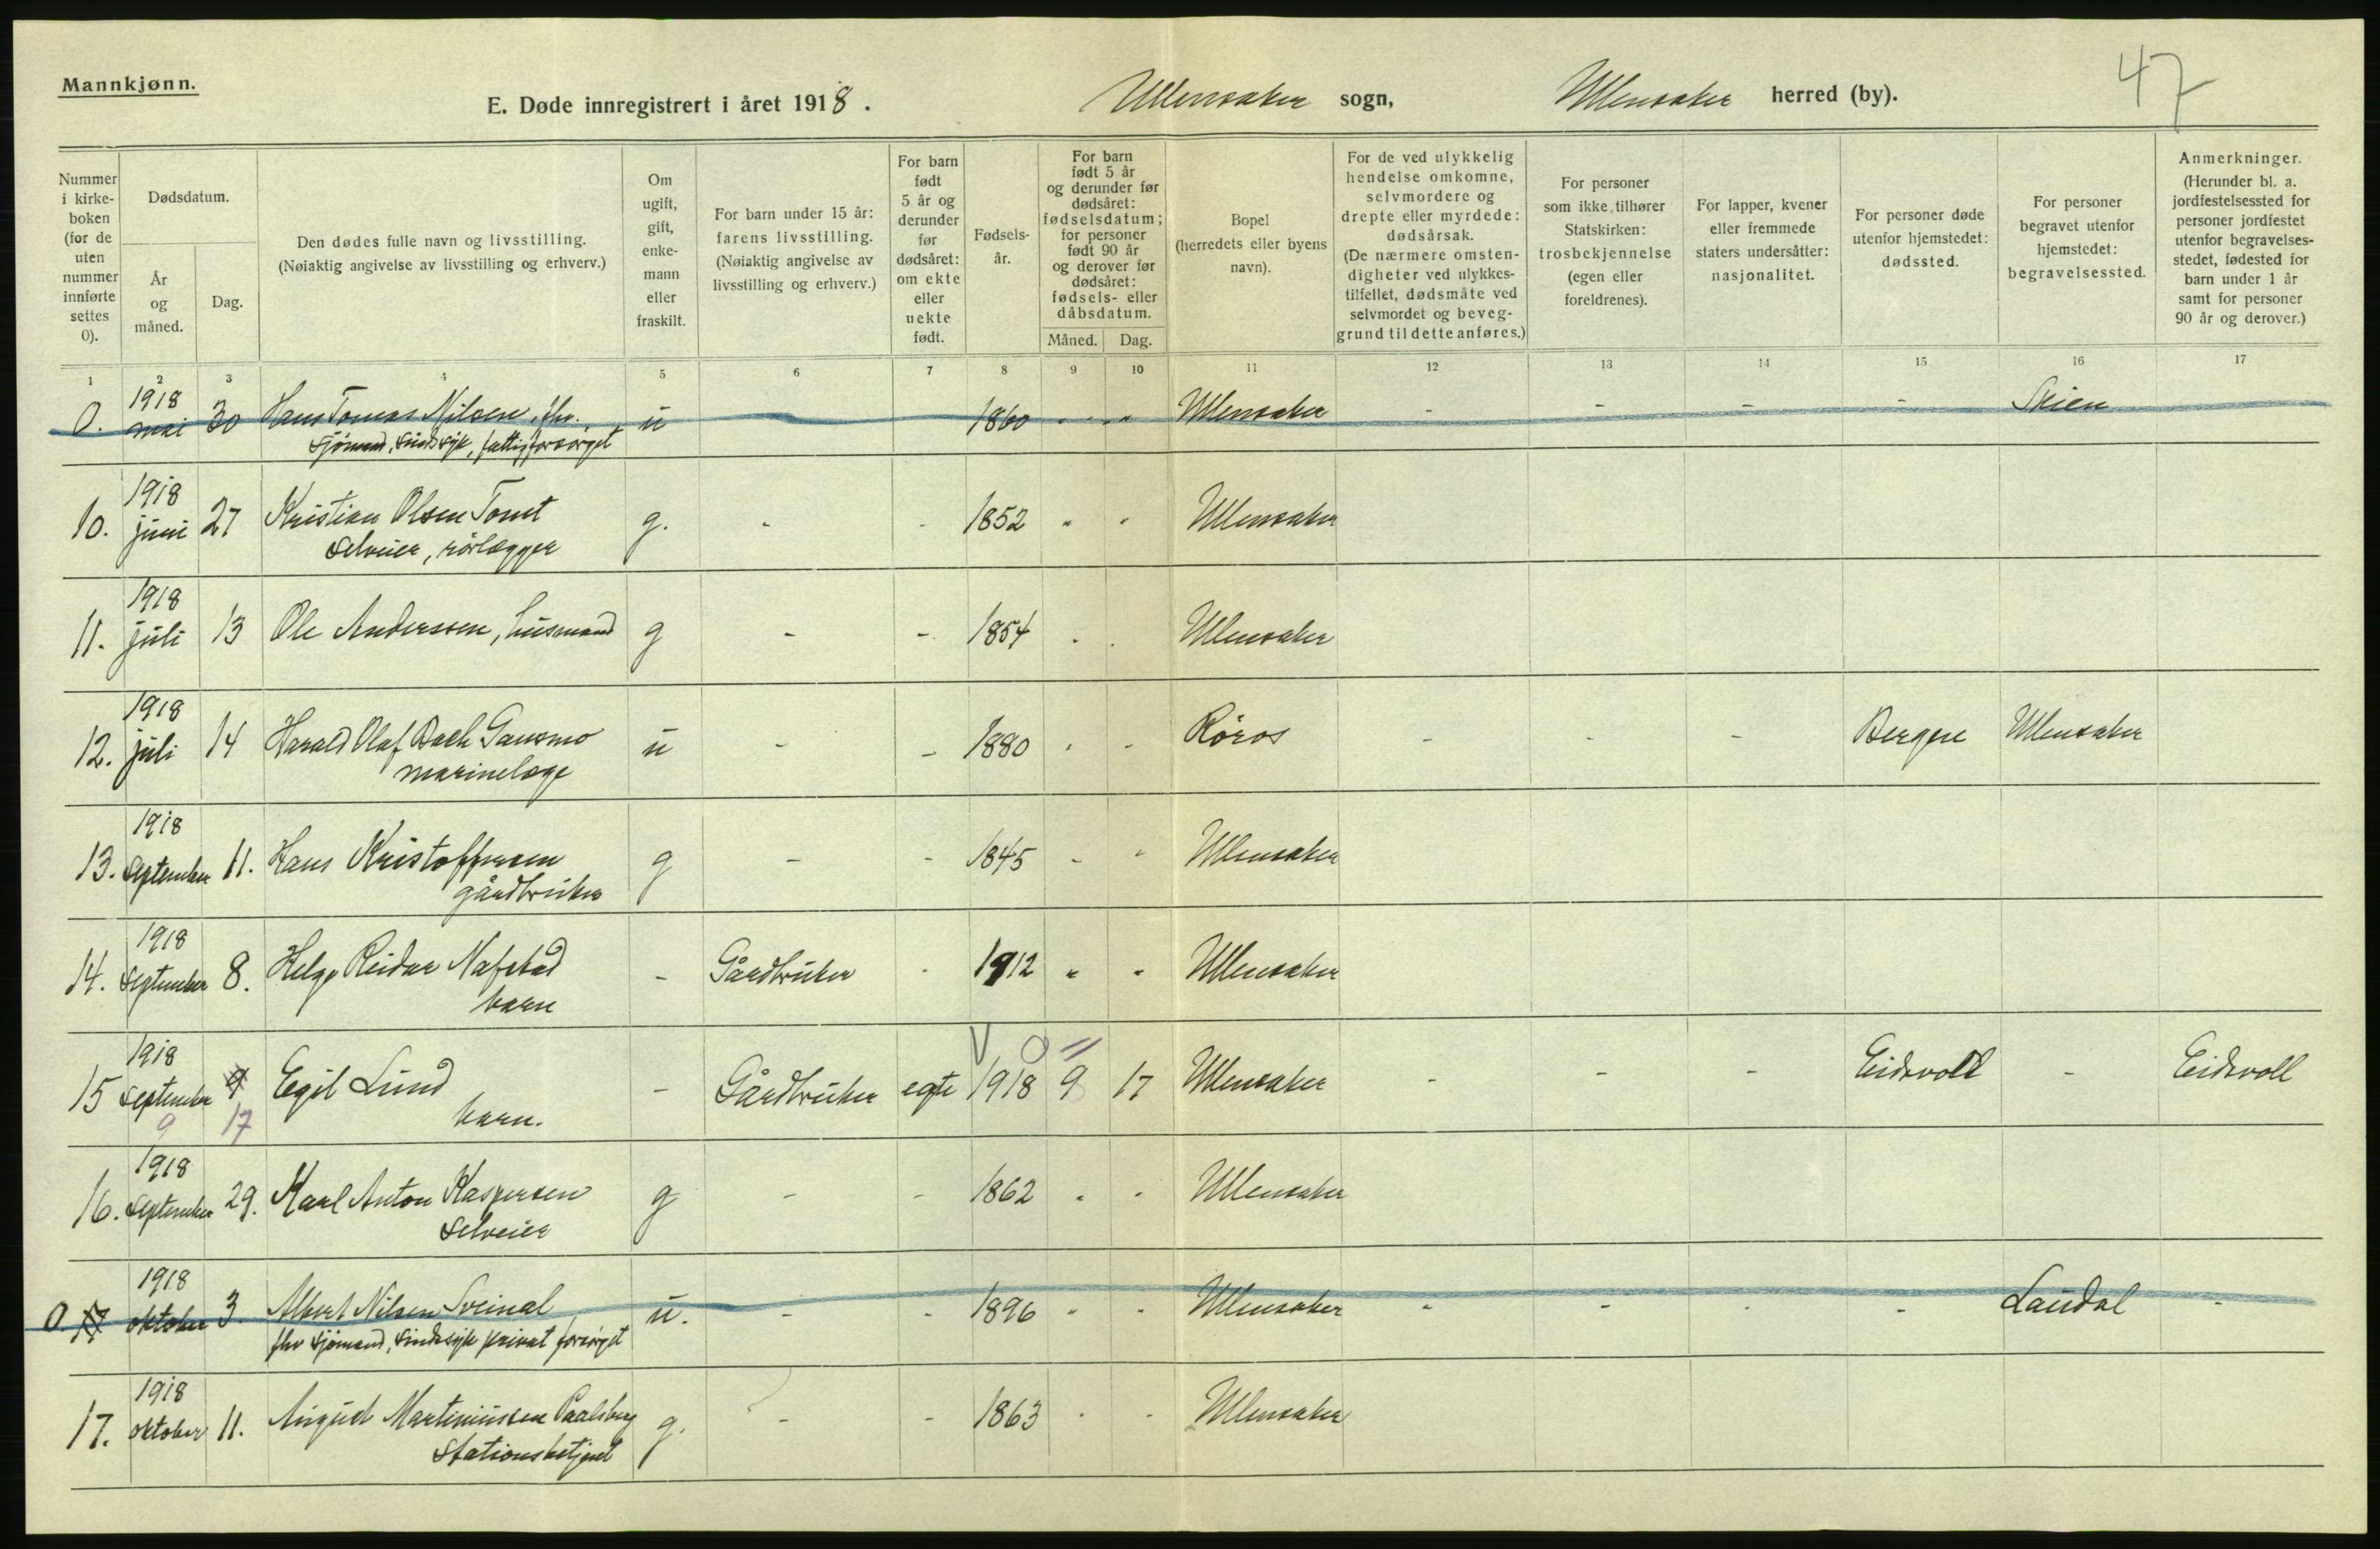 Mannkjønn.
E. Døde innregistrert i året 1918. Ullensaker sogn, Ullensaker herred (by).
47
Nummer i kirke-boken (for de uten nummer innførte settes 0).
Dødsdatum.
År og måned.
Dag.
Den dødes fulle navn og livsstilling.
(Nøiaktig angivelse av livsstilling og erhverv.)
Om ugift, gift, enke-mann eller fraskilt.
For barn under 15 år: farens livsstilling.
(Nøiaktig angivelse av livsstilling og erhverv.)
For barn født 5 år og derunder før dødsåret: om ekte eller uekte født.
Fødsels-år.
For barn født 5 år og derunder før dødsåret: fødselsdatum; for personer født 90 år og derover før dødsåret: fødsels- eller dåbsdatum.
Måned. Dag.
Bopel (herredets eller byens navn).
For de ved ulykkelig hendelse omkomne, selvmordere og drepte eller myrdede: dødsårsak.
(De nærmere omsten-digheter ved ulykkes-tilfellet, dødsmåte ved selvmordet og beveg-grund til dette anføres.)
For personer som ikke tilhører Statskirken: trosbekjennelse (egen eller foreldrenes).
For lapper, kvener eller fremmede staters undersåtter: nasjonalitet.
For personer døde utenfor hjemstedet: dødssted.
For personer begravet utenfor hjemstedet: begravelsessted.
Anmerkninger.
(Herunder bl. a. jordfestelsessted for personer jordfestet utenfor begravelses-stedet, fødested for barn under 1 år samt for personer 90 år og derover.)
1 2 3 4 5 6 7 8 9 10 11 12 13 14 15 16 17
0. 1918 mai 30 Hans Tomas Nilsen, fhv. u 1860 " " Ullensaker - - - - Skien
sjömand, sindssyk, fattigforsörget
10. 1918 juni 27 Kristian Olsen Tomt g. - - 1852 " " Ullensaker
selveier, rörlægger
11. 1918 juli 13 Ole Anderssen, husmand g - - 1854 . . Ullensaker
12. 1918 juli 14 Harald Olaf Bach Gansmo u - - 1880 - - Röros - - - Bergen Ullensaker
marinelæge
13. 1918 September 11. Hans Kristoffersen g - - 1845 - " Ullensaker
gårdbruker
14. 1918 September 8. Helge Reidar Nafstad - Gårdbruker - 1912 " " Ullensaker
barn
V 0 11
15 1918 September 9 Egil Lund - Gårdbruker egte 1918 9 17 Ullensaker - - - Eidsvoll - Eidsvoll
9 17 barn.
16. 1918 September 29. Karl Anton Kaspersen g - - 1862 " - Ullensaker
Selveier
0. 17 1918 oktober 3. Albert Nilsen Sveinal u. - - 1896 " - Ullensaker - - - - Laudal -
fhv sjömand, sindssyk privat forsörget
17. 1918 oktober 11. August Martiniussen Paalsberg g. - - 1863 - - Ullensaker
Stationsbetjent